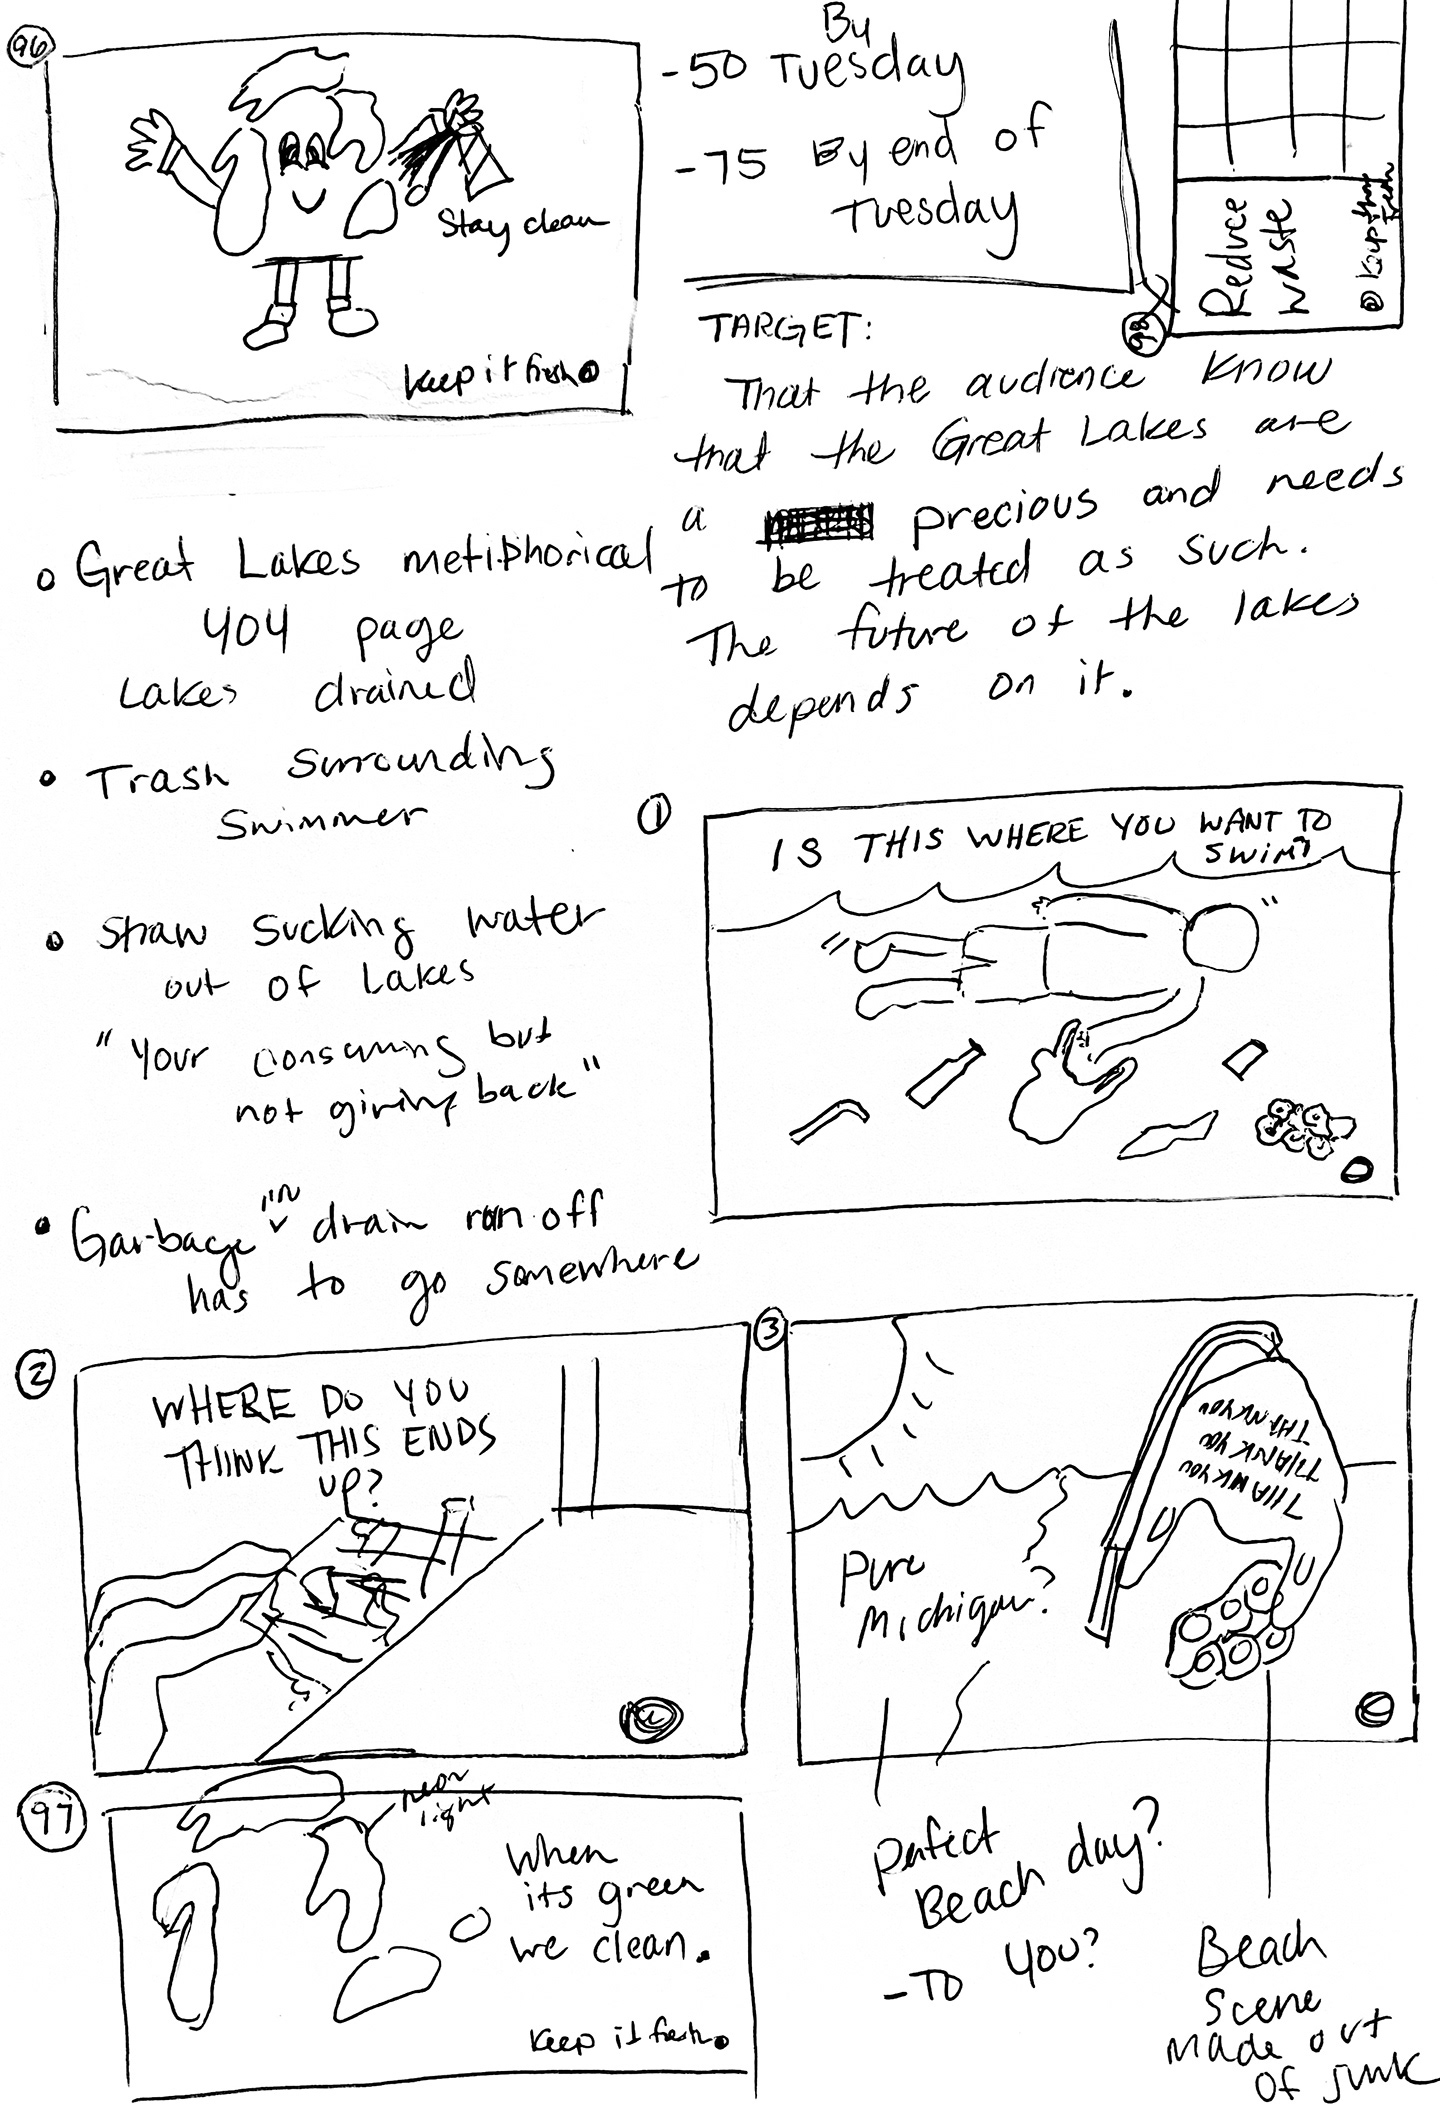 96
Stay clean
Keep it fresh
By
-50 Tuesday
-75 By end of
Tuesday
98
Reduce
waste
TARGET:
That the audience know
that the Great Lakes are
a precious and needs
to be treated as such.
The future of the lakes
depends on it.
Great Lakes metiphorical
404 page
Lakes drained
Trash surrounding
Swimmer
Straw sucking water
out of Lakes
"Your consuming but
not giving back"
Garbage in drain run off
has to go somewhere
1
IS THIS WHERE YOU WANT TO
SWIM?
2
WHERE DO YOU
THINK THIS ENDS
UP?
3
THANK YOU
THANK YOU
THANK YOU
Pure
Michigan?
Perfect
Beach day?
-To you?
Beach
Scene
Made out
Of junk
97
neon
light
When
its green
we clean.
Keep it fresh.